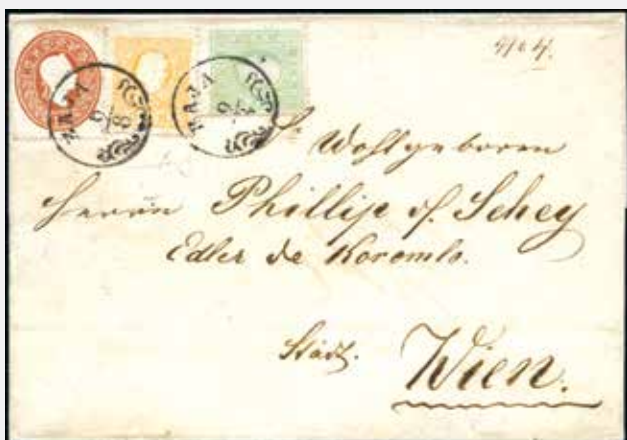 BAJA
9/8
BAJA
9/8
Sr Wohlgeboren
Herrn Phillip v. Schey
Edler de Koromla.
Stadt.
Wien.